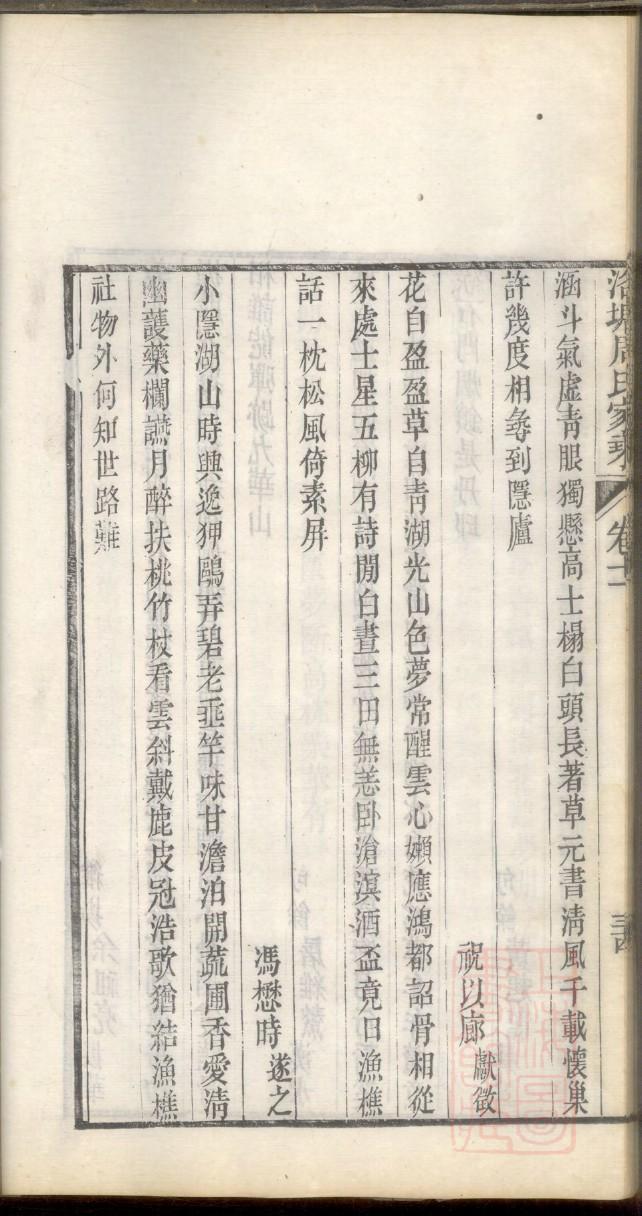 洛塘周氏家乘
卷十二
三四
涵斗氣虛靑眼獨懸高士榻白頭長著草元書淸風千載懷巢
許幾度相尋到隱廬
祝以廊獻徵
花自盈盈草自靑湖光山色夢常醒雲心嬾應鴻都詔骨相從
來處士星五柳有詩閒白晝三田無恙臥滄溟酒盃竟日漁樵
話一枕松風倚素屏
馮懋時遂之
小隱湖山時興逸狎鷗弄碧老垂竿味甘澹泊開蔬圃香愛淸
幽護藥欄讌月醉扶桃竹杖看雲斜戴鹿皮冠浩歌猶結漁樵
社物外何知世路難